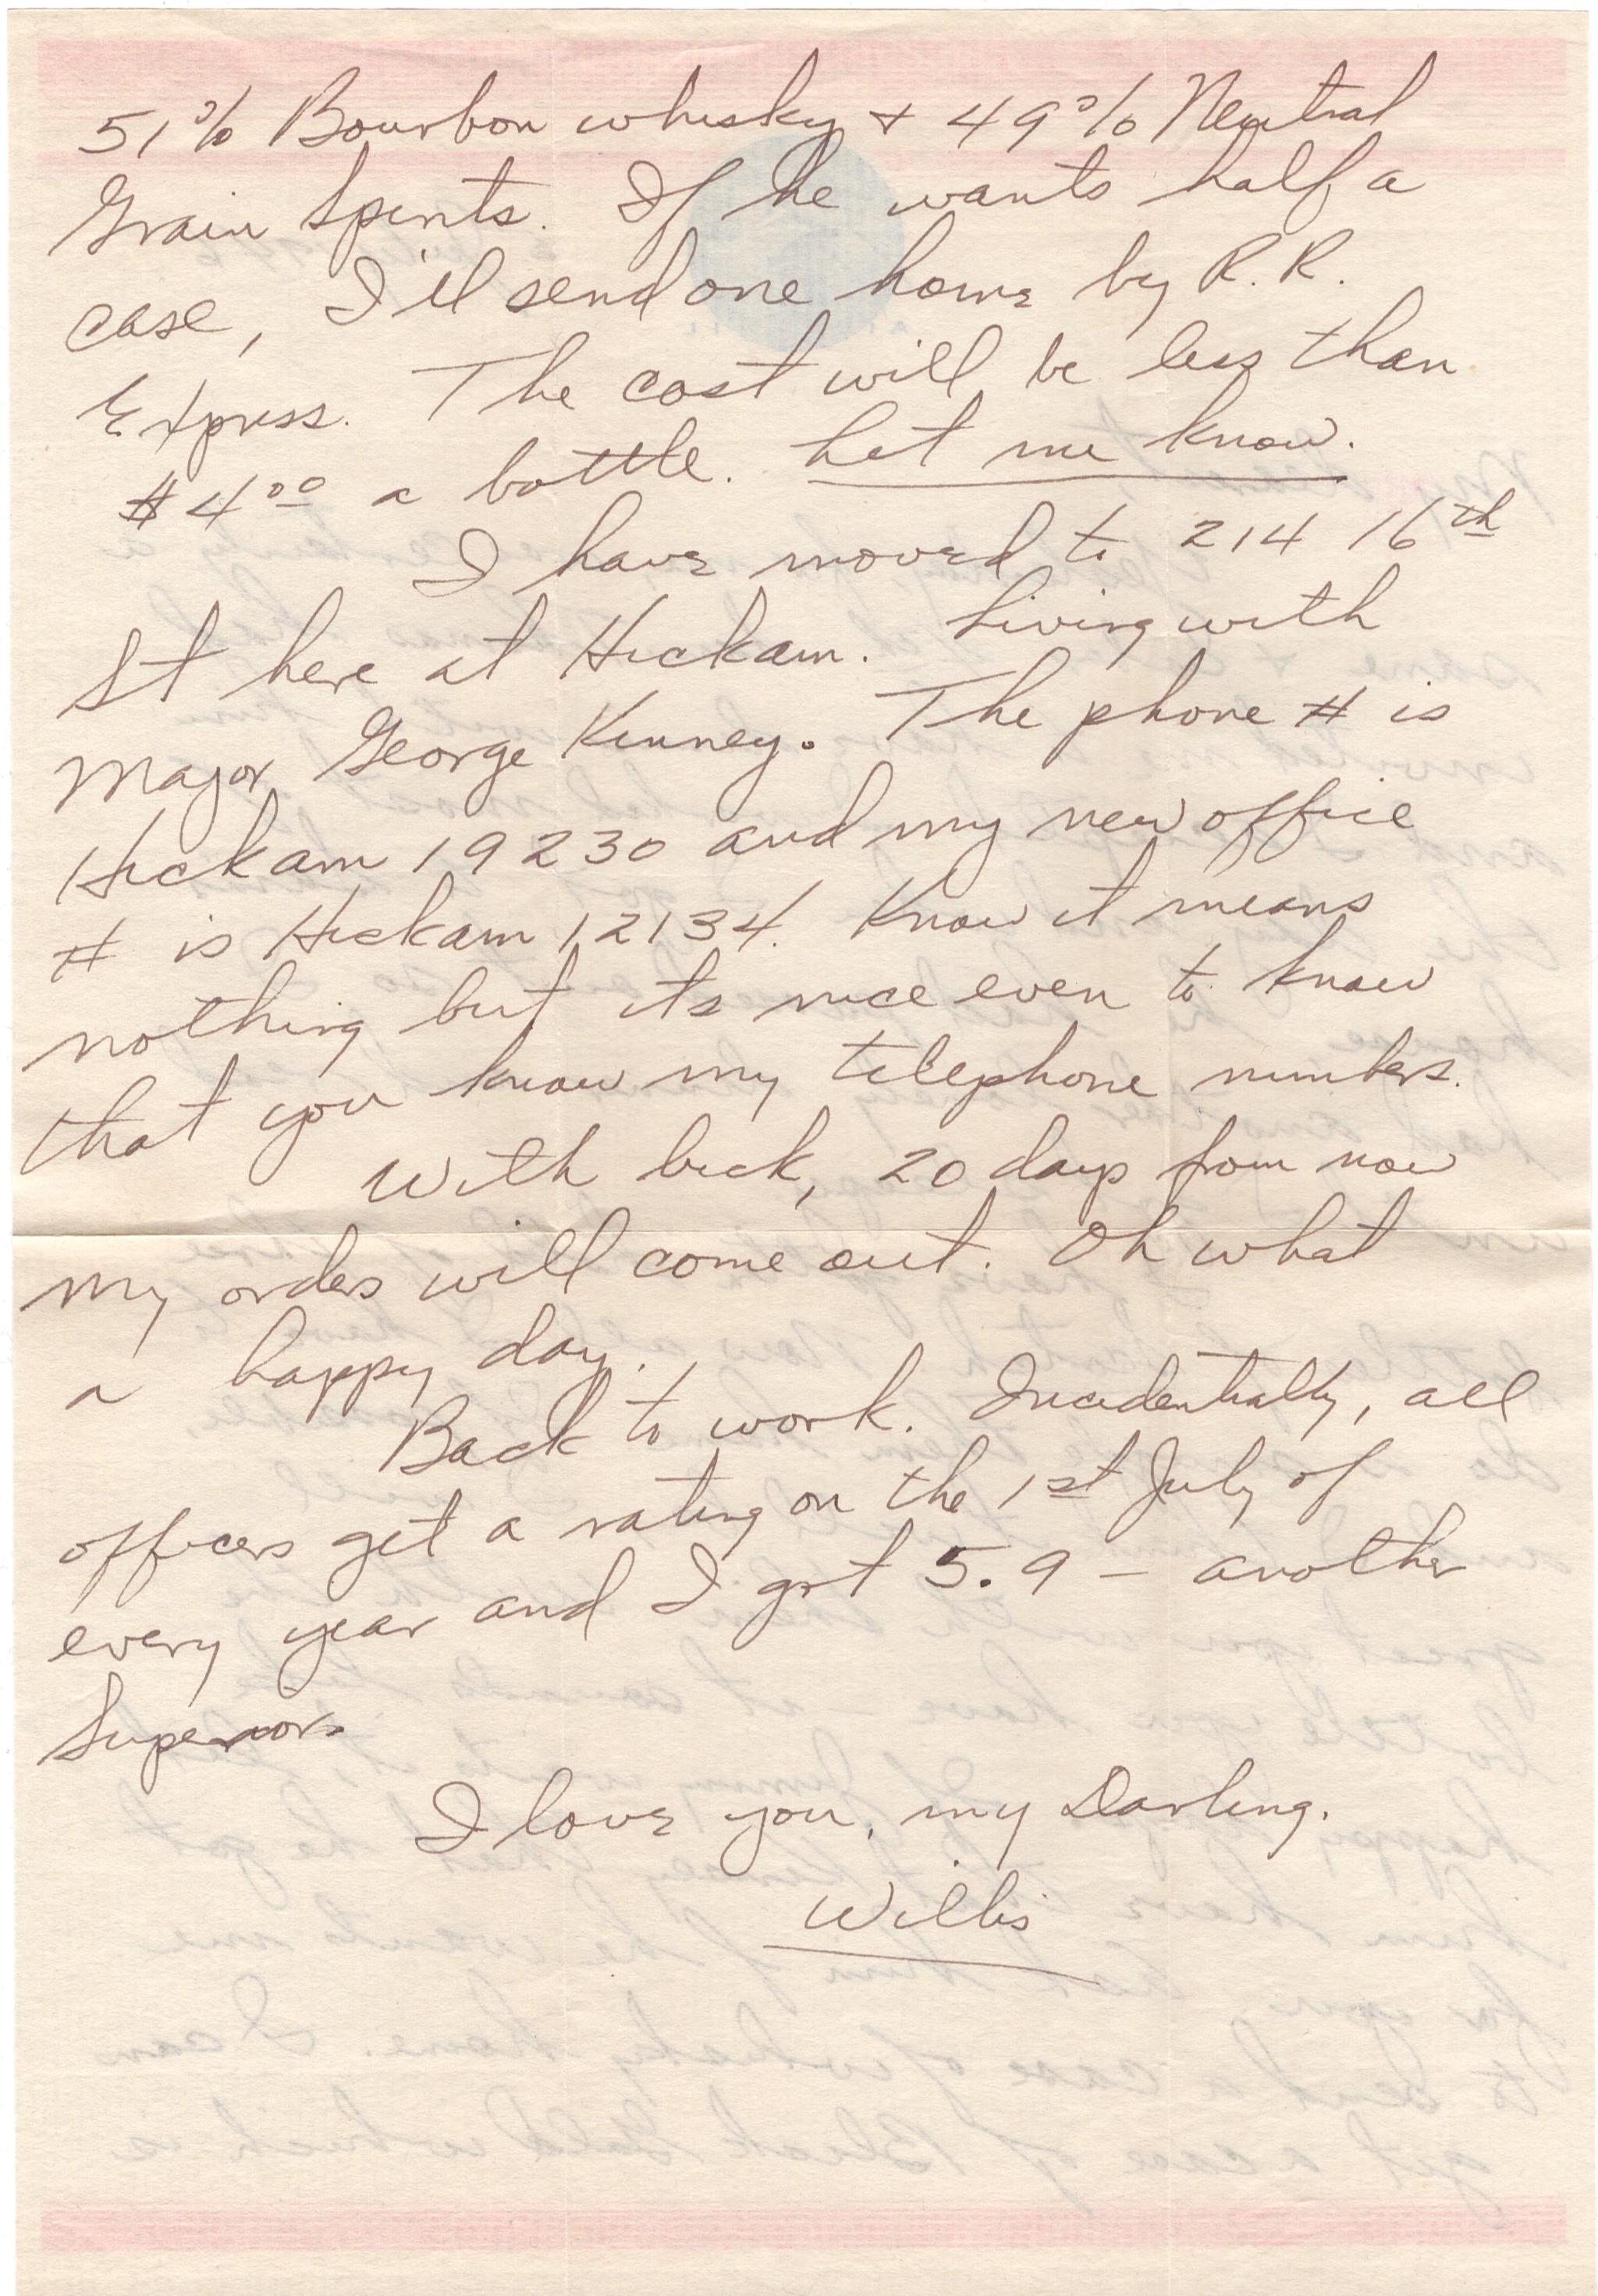 51% Bourbon whisky + 49% Neutral
Grain Spirits. If he wants half a
case, I'll send one home by R.R.
Express. The cost will be less than
$4.00 a bottle. Let me know.
I have moved to 214 16th
St here at Hickam. Living with
Major George Kenney. The phone # is
Hickam 19230 and my new office
# is Hickam 12134. Know it means
nothing but its nice even to know
that you know my telephone numbers.
With luck, 20 days from now
my orders will come out. Oh what
a happy day.
Back to work. Incidentally, all
officers get a rating on the 1st July of
every year and I got 5.9 - another
Superior
I love you, my Darling.
Willis